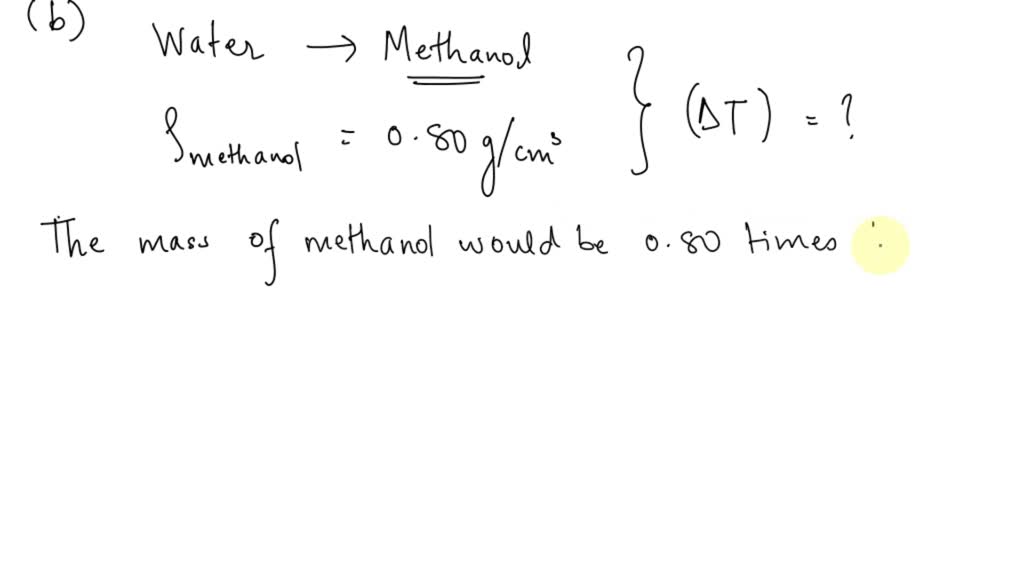 (b)
Water → Methanol
ρmethanol = 0.80 g/cm³ } (ΔT) = ?
The mass of methanol would be 0.80 times